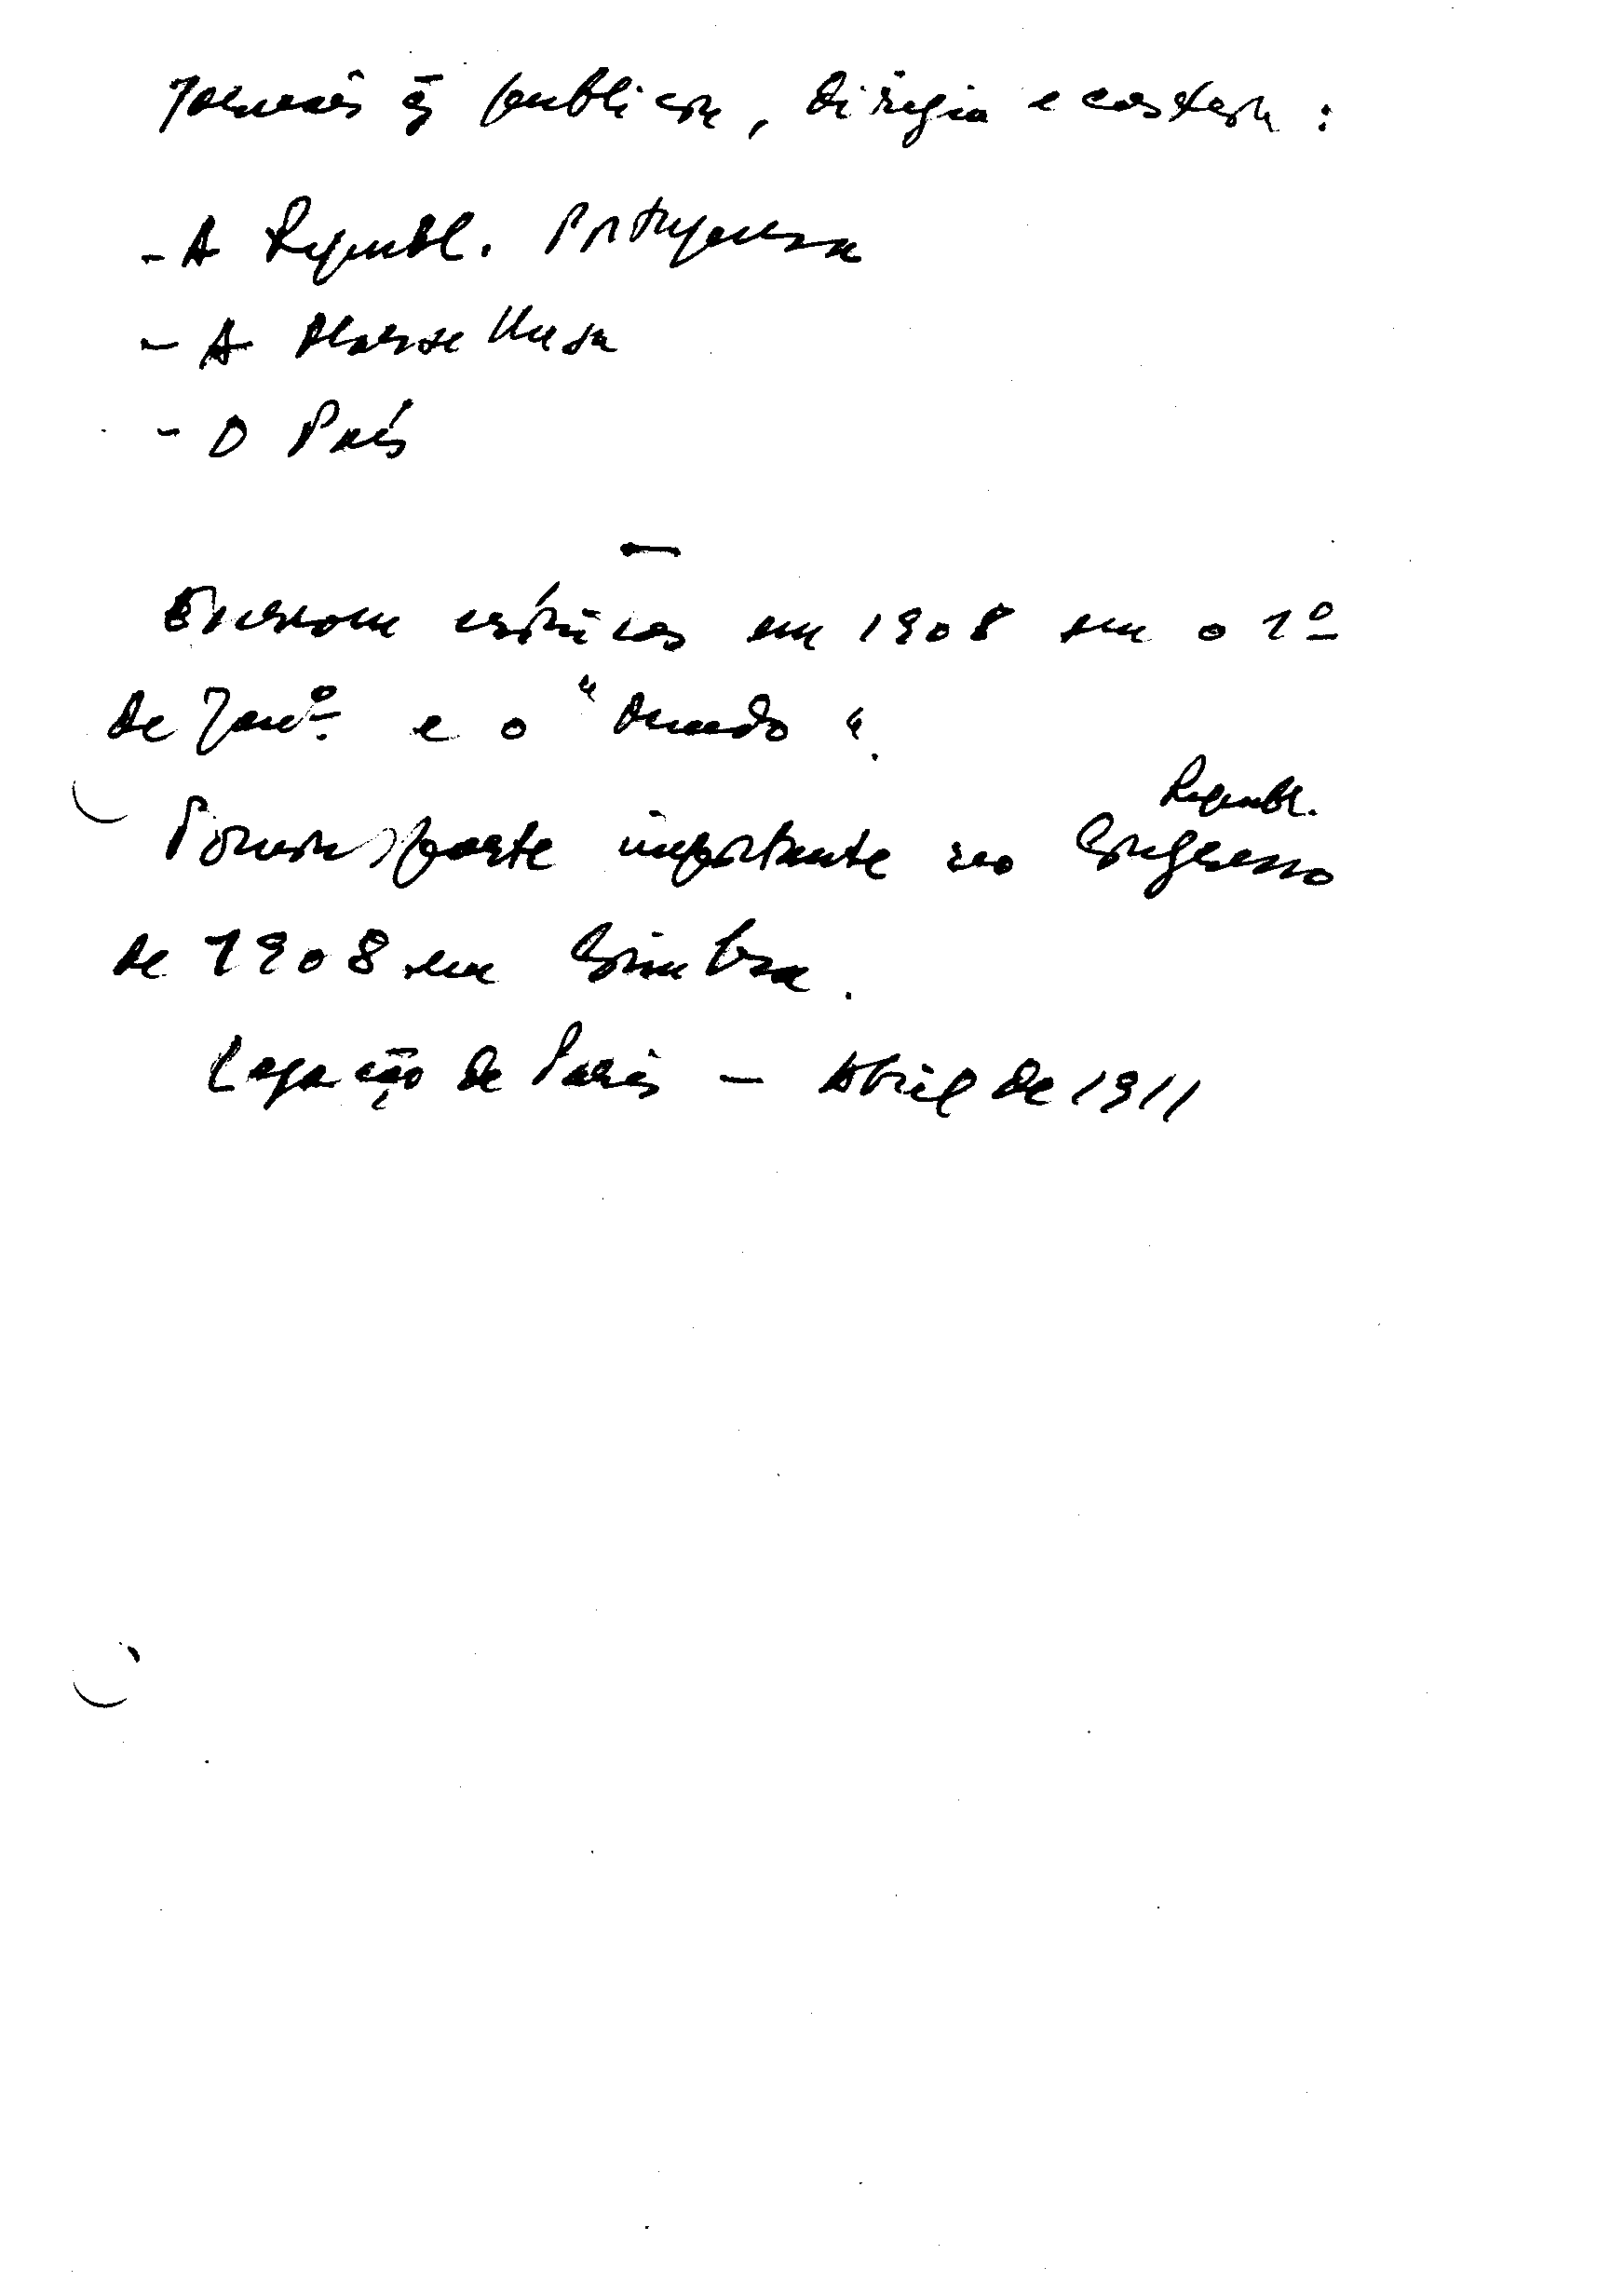 Jornais q̃ publicou, dirigiu e custeou :
- A Republ. Portuguesa
- A Marselhesa
- O País
Escreveu crónicas em 1908 em o 1º
de Janº. e o "Mundo".
Republ.
Tomou parte importante no Congresso
de 1908 em Coimbra.
Legação de Paris — Abril de 1911